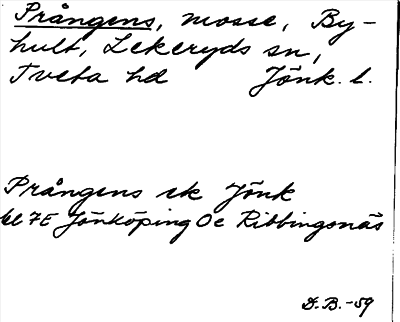 Prångens, mosse, By-
hult, Lekeryds sn,
Tveta hd Jönk. l.
Prångens ek Jönk
bl 7E Jönköping Oc Ribbingsnäs
D.B.-59